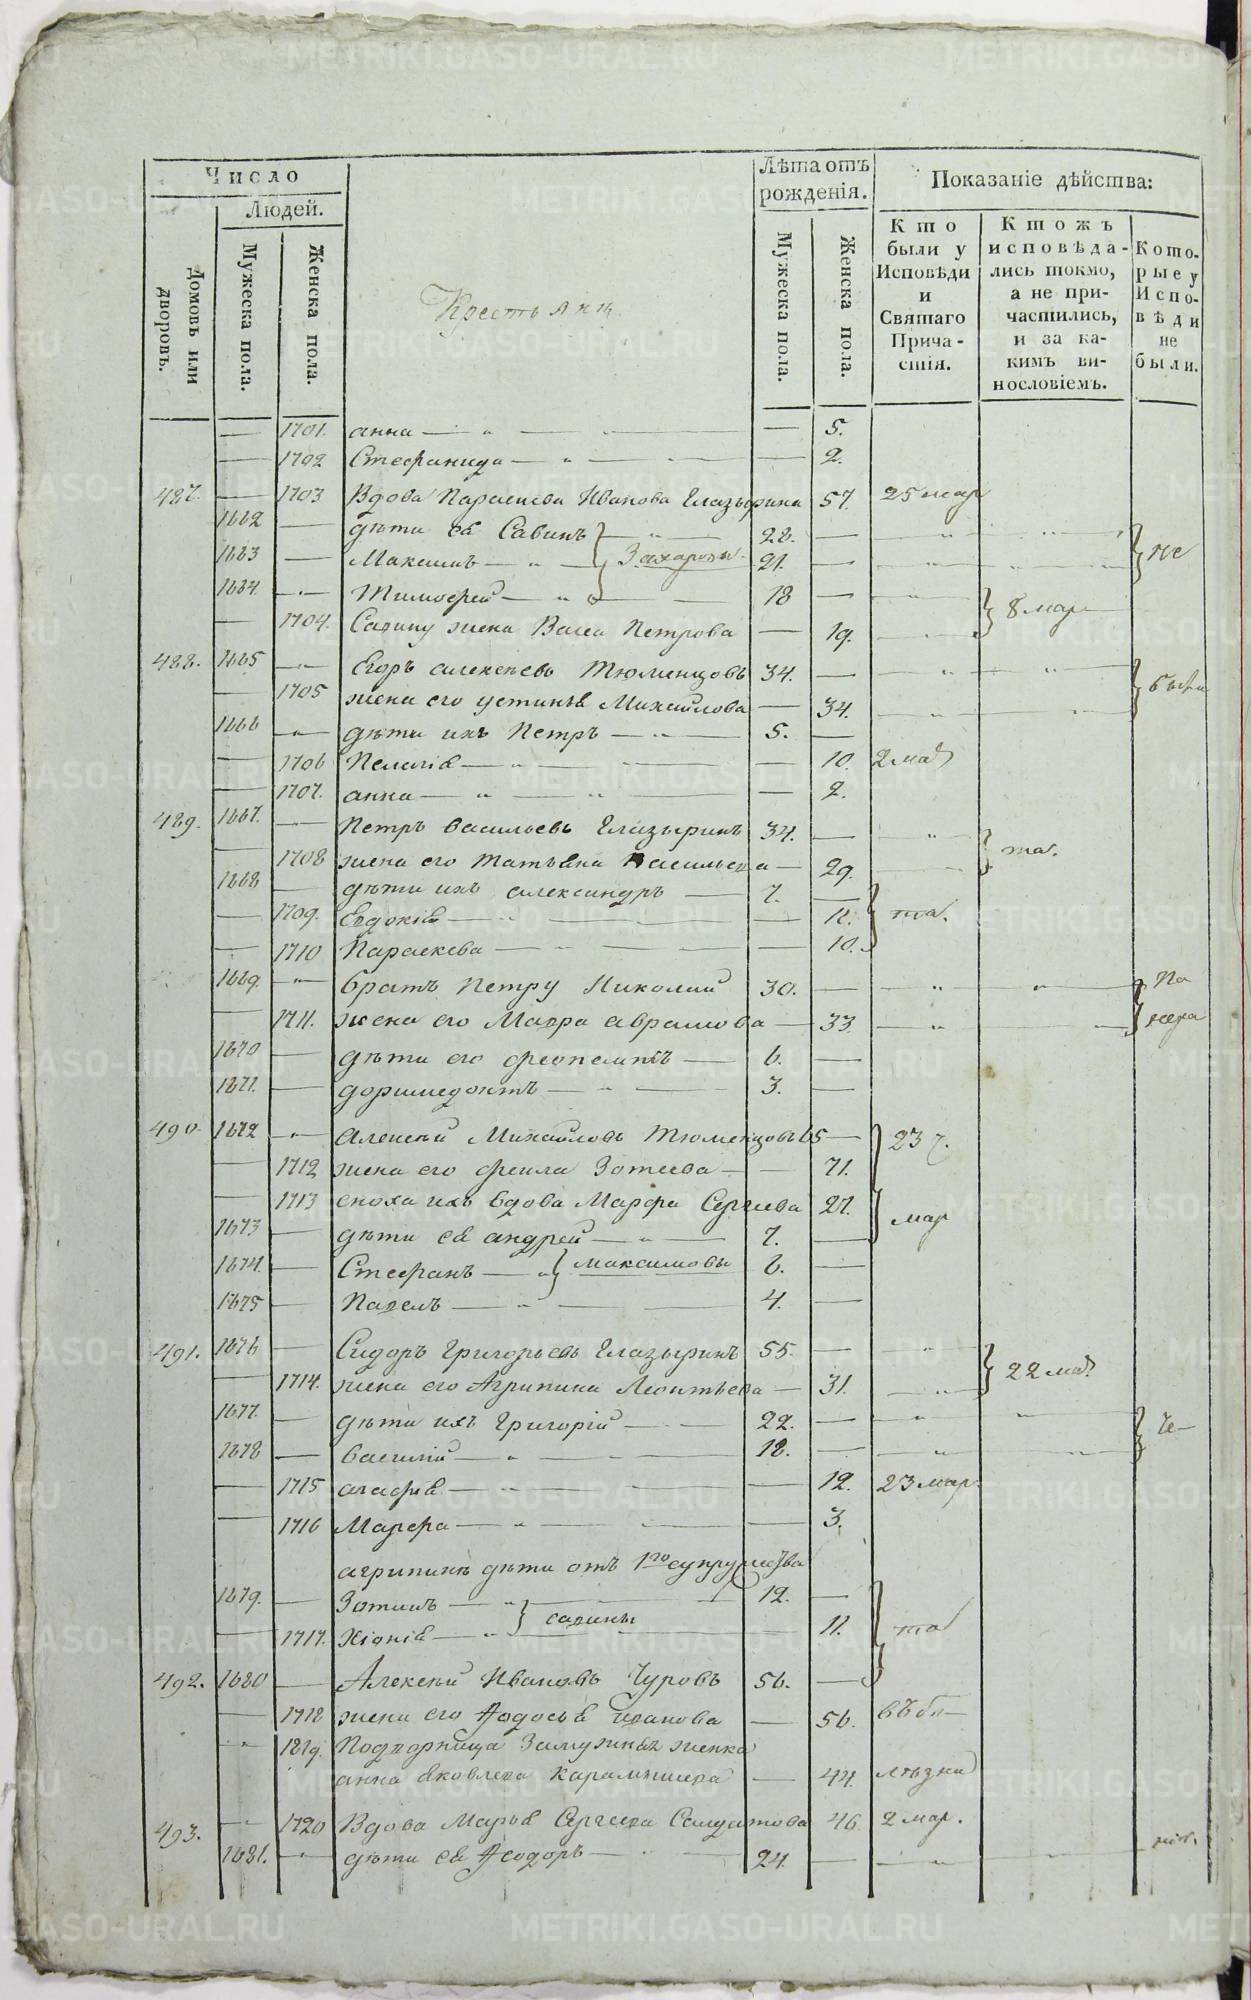 Число
Людей.
Домовъ или дворовъ.
Мужеска пола.
Женска пола.
Крестьяни.
Лѣта отъ рожденія.
Мужеска пола.
Женска пола.
Показаніе дѣйства:
Кто были у Исповѣди и Святаго Причастія.
Ктожъ исповѣдались токмо, а не причастились, и за какимъ винословіемъ.
Которые у Исповѣди не были.
— 1701. анна — — 5.
— 1702 Стефанида — — 2.
487. — 1703 Вдова Параскева Иванова Глазырина 57. 25 мар
1662 — дѣти ея Савинъ 28. —
1663 — Максимъ — Захаровы 21. — не
1664. — Тимофей — 18 — 8 мар
— 1704. Савину жена Васса Петрова — 19.
488. 1665 — Егоръ алексѣевъ Тюменцовъ 34. —
— 1705 жена его устинья Михайлова — 34. были
1666 — дѣти ихъ Петръ — 5. —
— 1706 Пелагія — — 10. 2 мая
— 1707. анна — — 2.
489. 1667. — Петръ васильевъ Глазыринъ 34. —
— 1708 жена его татьяна Васильева — 29. та.
1668 — дѣти ихъ александръ — 7. —
— 1709. Евдокія — — 12. та.
— 1710 Параскева — — 10.
1669. — братъ Петру Николай 30. — По
— 1711. жена его Мавра аврамова — 33.
1670 — дѣти его феопемптъ — 6. —
1671. — доримедонтъ — 3. —
490. 1672 — алексѣй Михайловъ Тюменцовъ 65 — 23 ч.
— 1712 жена его фекла Зотеева — 71.
— 1713 сноха ихъ вдова Марфа Сергѣева 27. мар
1673 — дѣти ея андрей — 7. —
1674. — Стефанъ — максимовы 6. —
1675 — Павелъ — 4. —
491. 1676 — Сидоръ Григорьевъ Глазыринъ 55. —
— 1714. жена его Агрипина Леонтьева — 31. 22 мая
1677. — дѣти ихъ Григорій — 22. —
1678 — василій — 18. —
— 1715 агафія — — 12. 23 мар.
— 1716 Марфа — — 3.
агрипинѣ дѣти отъ 1го супружества
1679. — Зотикъ — савины 12. —
— 1717. Хіонія — — 11. та
492. 1680 — Алексѣй Ивановъ Чуровъ 56. —
— 1718 жена его Ѳедосья Иванова — 56. въ бо—
1819. Подворница Замужняя женка
анна яковлева Карамышева — 44. лѣзни
493. — 1720 Вдова Марья Сергѣева Солдатова 46 2 мар.
1681. — дѣти ея Ѳеодоръ — 24. —
METRIKI.GASO-URAL.RU